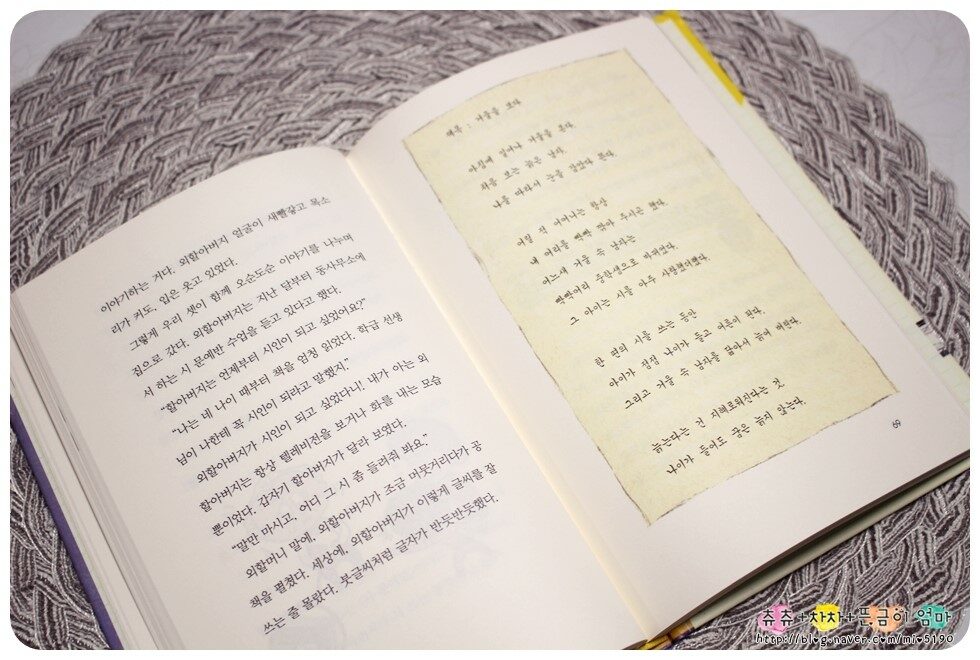 이야기하는 거다. 외할아버지 얼굴이 새빨갛고 목소
리가 커도, 입은 웃고 있었다.
그렇게 우리 셋이 함께 오순도순 이야기를 나누며
집으로 갔다. 외할아버지는 지난 달부터 동사무소에
서 하는 시 문예반 수업을 듣고 있다고 했다.
"할아버지는 언제부터 시인이 되고 싶었어요?"
"나는 네 나이 때부터 책을 엄청 읽었다. 학급 선생
님이 나한테 꼭 시인이 되라고 말했지."
외할아버지가 시인이 되고 싶었다니! 내가 아는 외
할아버지는 항상 텔레비전을 보거나 화를 내는 모습
뿐이었다. 갑자기 할아버지가 달라 보였다.
"말만 마시고, 어디 그 시 좀 들려줘 봐요."
외할머니 말에, 외할아버지가 조금 머뭇거리다가 공
책을 펼쳤다. 세상에, 외할아버지가 이렇게 글씨를 잘
쓰는 줄 몰랐다. 붓글씨처럼 글자가 반듯반듯했다.
제목 : 거울을 보다
아침에 일어나 거울을 본다.
처음 보는 늙은 남자.
나를 따라서 눈을 감았다 뜬다.
어릴 적 어머니는 항상
내 머리를 빡빡 깎아 주시곤 했다.
어느새 거울 속 남자는
빡빡머리 중학생으로 바뀌었다.
그 아이는 시를 아주 사랑했더랬다.
한 편의 시를 쓰는 동안
아이가 점점 나이가 들고 어른이 된다.
그리고 거울 속 남자를 닮아서 늙어 버린다.
늙는다는 건 지혜로워진다는 것.
나이가 들어도 꿈은 늙지 않는다.
69
츄츄+차차+뜬금이 엄마
http://blog.naver.com/mi*5190